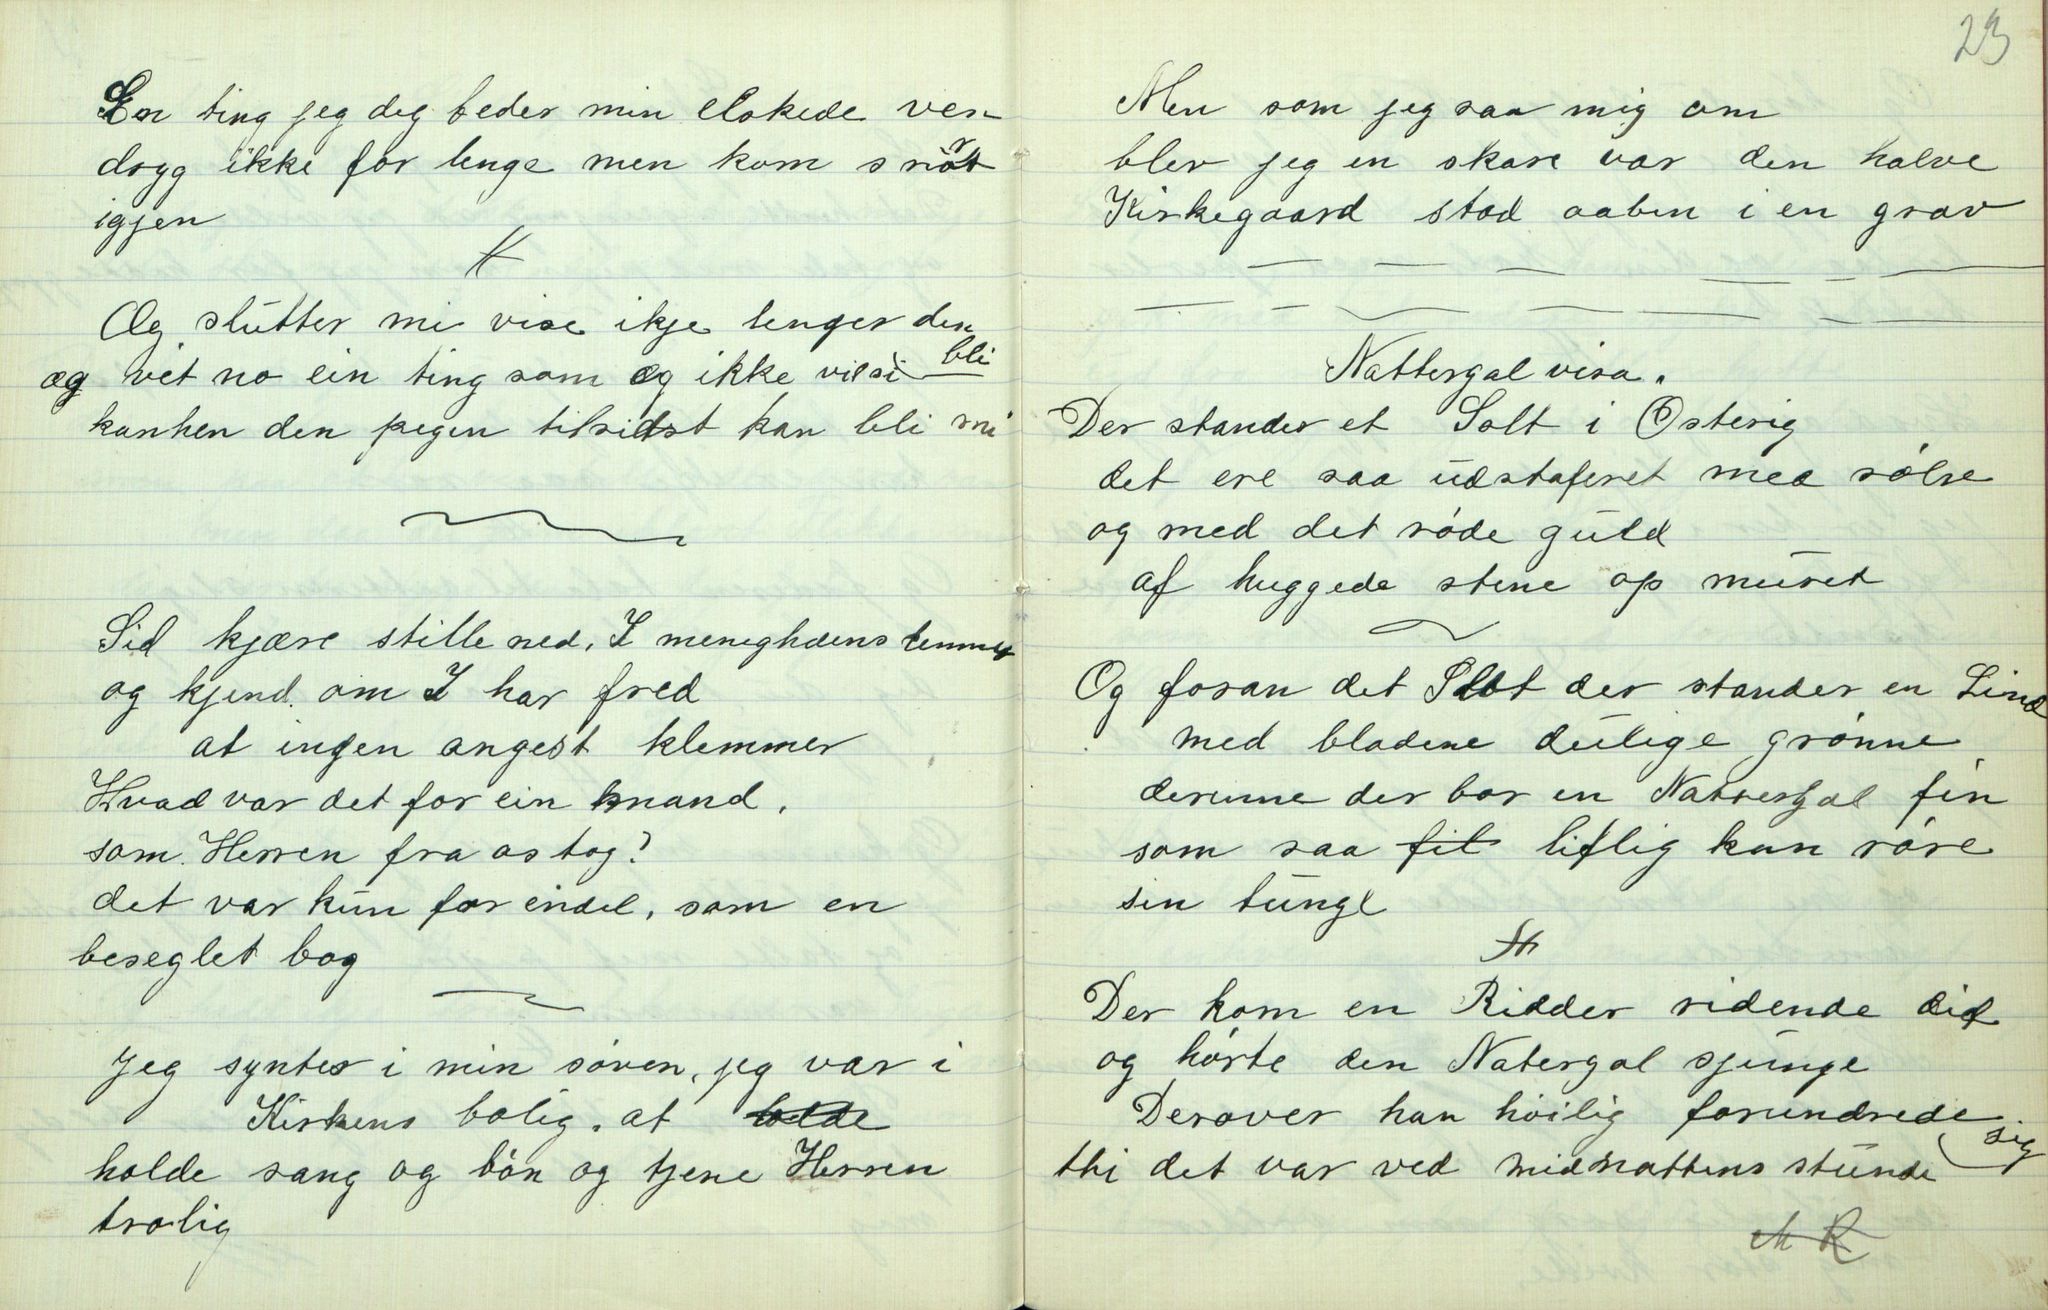 En ting jeg dig beder min elskede ven
dryg ikke for lenge men kom snart
igjen
Æg slutter mi vise ikje lenger den bli
æg veit no ein ting som æg ikke vil si
kanhen den pegen tilsidst kan bli mi
Sid kjære stille ned. I menighdens lemmer
og kjend om I har fred
at ingen angest klemmer
Hvad var det for ein knand.
som Herren fra os tog?
det var kun for endel. som en
beseglet bog
Jeg syntes i min söven, jeg var i
Kirkens bolig. at holde
holde sang og bön og tjene Herren
trolig
23
Men som jeg saa mig om
blev jeg en skare var den halve
Kirkegaard stod aaben i en grav
Nattergal visa.
Der stander et Solt i Osterig
det ere saa udstaferet med sölve
og med det röde guld
af huggede stene op muret
Og foran det Slot der stander en Lind
med bladene deilige grönne
derinne der bor en Nattergal fin
som saa fil liflig kan röre
sin tunge
Der kom en Ridder ridende did
og hörte den Natergal sjunge
Derover han höilig forundrede sig
thi det var ved midnattens stunde
M R